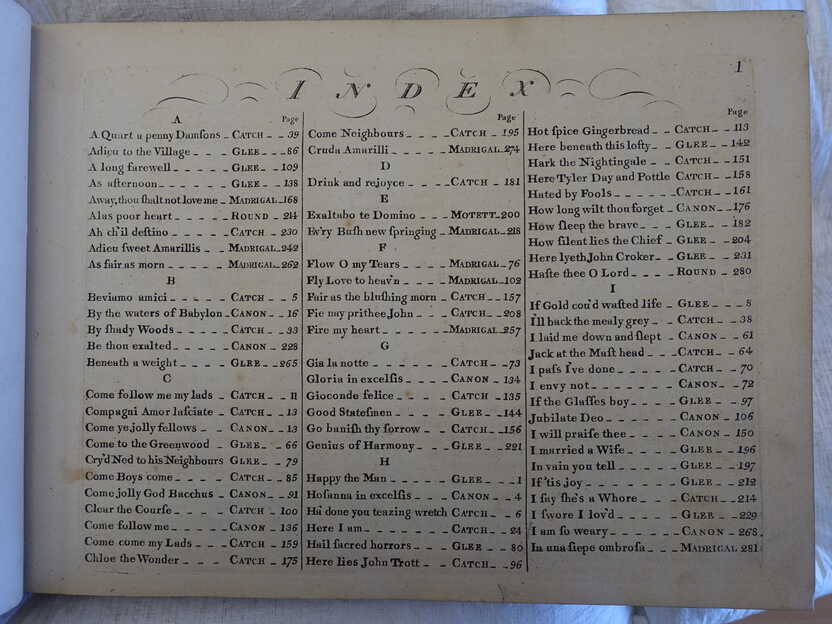 1
INDEX
A Page
A Quart a penny Damſons _ CATCH _ _ 39
Adieu to the Village _ _ _ GLEE _ _ _ 86
A long farewell _ _ _ _ _ GLEE _ _ 109
As afternoon _ _ _ _ _ _ GLEE _ _ 138
Away, thou ſhalt not love me _ MADRIGAL _ 168
Alas poor heart _ _ _ _ _ ROUND _ 214
Ah ch'il deſtino _ _ _ _ CATCH _ 230
Adieu ſweet Amarillis _ _ MADRIGAL _ 242
As fair as morn _ _ _ _ _ MADRIGAL _ 262
B
Beviamo amici _ _ _ _ _ CATCH _ _ 5
By the waters of Babylon _ CANON _ _ 16
By ſhady Woods _ _ _ _ CATCH _ _ 33
Be thou exalted _ _ _ _ CANON _ 228
Beneath a weight _ _ _ _ GLEE _ _ 265
C
Come follow me my lads _ CATCH _ _ 11
Compagni Amor laſciate _ CATCH _ _ 13
Come ye jolly fellows _ _ CANON _ _ 13
Come to the Greenwood _ GLEE _ _ 66
Cry'd Ned to his Neighbours GLEE _ _ 79
Come Boys come _ _ _ _ CATCH _ _ 85
Come jolly God Bacchus _ CANON _ _ 91
Clear the Courſe _ _ _ _ CATCH _ 100
Come follow me _ _ _ _ _ CANON _ 136
Come come my Lads _ _ _ CATCH _ 159
Chloe the Wonder _ _ _ CATCH _ 175
Page
Come Neighbours _ _ _ _ CATCH _ 195
Cruda Amarilli _ _ _ _ MADRIGAL _ 274
D
Drink and rejoyce _ _ _ _ CATCH _ 181
E
Exaltabo te Domino _ _ _ MOTETT _ 200
Ev'ry Buſh new ſpringing _ MADRIGAL _ 218
F
Flow O my Tears _ _ _ _ MADRIGAL _ 76
Fly Love to heav'n _ _ _ MADRIGAL _ 102
Fair as the bluſhing morn _ CATCH _ _ 157
Fie nay prithee John _ _ CATCH _ _ 208
Fire my heart _ _ _ _ _ MADRIGAL _ 257
G
Gia la notte _ _ _ _ _ CATCH _ _ 73
Gloria in excelſis _ _ _ CANON _ 134
Gioconde felice _ _ _ _ CATCH _ 135
Good Stateſmen _ _ _ _ GLEE _ _ 144
Go baniſh thy ſorrow _ _ CATCH _ _ 156
Genius of Harmony _ _ _ GLEE _ _ 221
H
Happy the Man _ _ _ _ GLEE _ _ _ 1
Hoſanna in excelſis _ _ CANON _ _ 4
Ha! done you teazing wretch CATCH _ _ 6
Here I am _ _ _ _ _ _ CATCH _ _ 24
Hail ſacred horrors _ _ _ GLEE _ _ 80
Here lies John Trott _ _ CATCH _ _ 96
Page
Hot ſpice Gingerbread _ _ CATCH _ _ 113
Here beneath this lofty _ _ GLEE _ _ 142
Hark the Nightingale _ _ CATCH _ _ 151
Here Tyler Day and Pottle CATCH _ _ 158
Hated by Fools _ _ _ _ CATCH _ _ 161
How long wilt thou forget _ CANON _ _ 176
How ſleep the brave _ _ _ GLEE _ _ 182
How ſilent lies the Chief _ GLEE _ _ 204
Here lyeth John Croker _ _ GLEE _ _ 231
Haſte thee O Lord _ _ _ ROUND _ 280
I
If Gold cou'd waſted life _ GLEE _ _ _ 8
I'll back the mealy grey _ _ CATCH _ _ 38
I laid me down and ſlept _ CANON _ _ 61
Jack at the Maſt head _ _ CATCH _ _ 64
I paſs I've done _ _ _ _ CATCH _ _ 70
I envy not _ _ _ _ _ _ CANON _ _ 72
If the Glaſſes boy _ _ _ GLEE _ _ 97
Jubilate Deo _ _ _ _ _ CANON _ 106
I will praiſe thee _ _ _ CANON _ 150
I married a Wife _ _ _ _ GLEE _ _ 196
In vain you tell _ _ _ _ GLEE _ _ 197
If 'tis joy _ _ _ _ _ _ GLEE _ _ 212
I ſay ſhe's a Whore _ _ _ CATCH _ _ 214
I ſwore I lov'd _ _ _ _ GLEE _ _ 229
I am ſo weary _ _ _ _ _ CANON _ 268
In una ſiepe ombroſa _ _ _ MADRIGAL 281